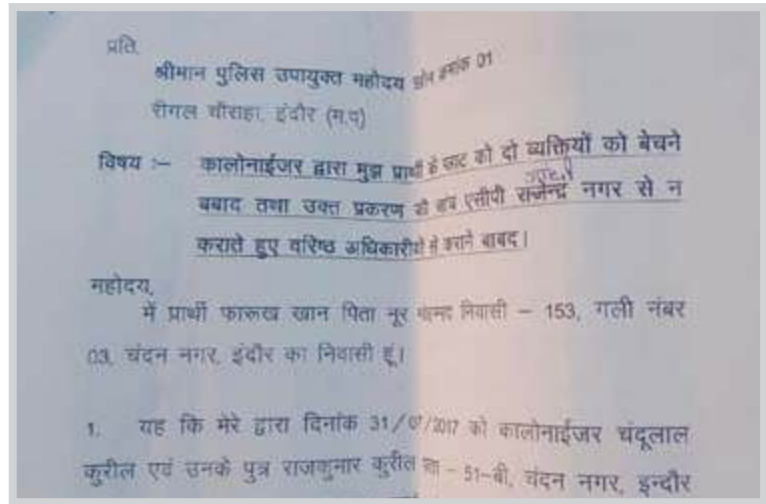 प्रति,
श्रीमान पुलिस उपायुक्त महोदय झोन क्रमांक 01
रीगल चौराहा, इंदौर (म.प्र)
विषय :– कालोनाईजर द्वारा मुझ प्रार्थी के प्लाट को दो व्यक्तियों को बेचने
बबाद तथा उक्त प्रकरण की जांच एसीपी राजेन्द्र नगर से न
कराते हुए वरिष्ठ अधिकारीयों से कराने बाबद।
महोदय,
में प्रार्थी फारूख खान पिता नूर निवासी – 153, गली नंबर
03, चंदन नगर, इंदौर का निवासी हूं।
1. यह कि मेरे द्वारा दिनांक 31/07/2017 को कालोनाईजर चंदूलाल
कुरील एवं उनके पुत्र राजकुमार कुरील – 51-बी, चंदन नगर, इन्दौर